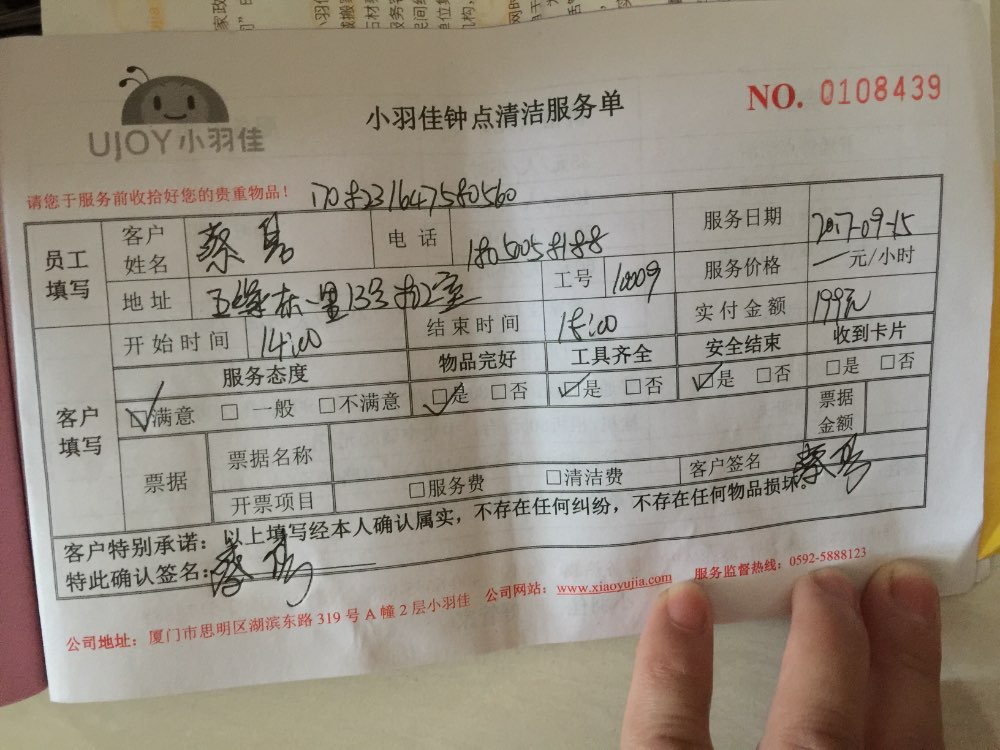 UJOY 小羽佳
小羽佳钟点清洁服务单
NO. 0108439
请您于服务前收拾好您的贵重物品！
员工填写 客户姓名 蔡 电话 服务日期 2017-09-15
地址 13号 室 工号 10009 服务价格 — 元/小时
客户填写 开始时间 14:00 结束时间 18:00 实付金额 199元
服务态度 物品完好 工具齐全 安全结束 收到卡片
☑满意 □一般 □不满意 ☑是 □否 ☑是 □否 ☑是 □否 □是 □否
票据 票据名称 票据金额
开票项目 □服务费 □清洁费 客户签名 蔡
客户特别承诺：以上填写经本人确认属实，不存在任何纠纷，不存在任何物品损坏。
特此确认签名：蔡
公司地址：厦门市思明区湖滨东路 319 号 A 幢 2 层小羽佳 公司网站：www.xiaoyujia.com 服务监督热线：0592-5888123